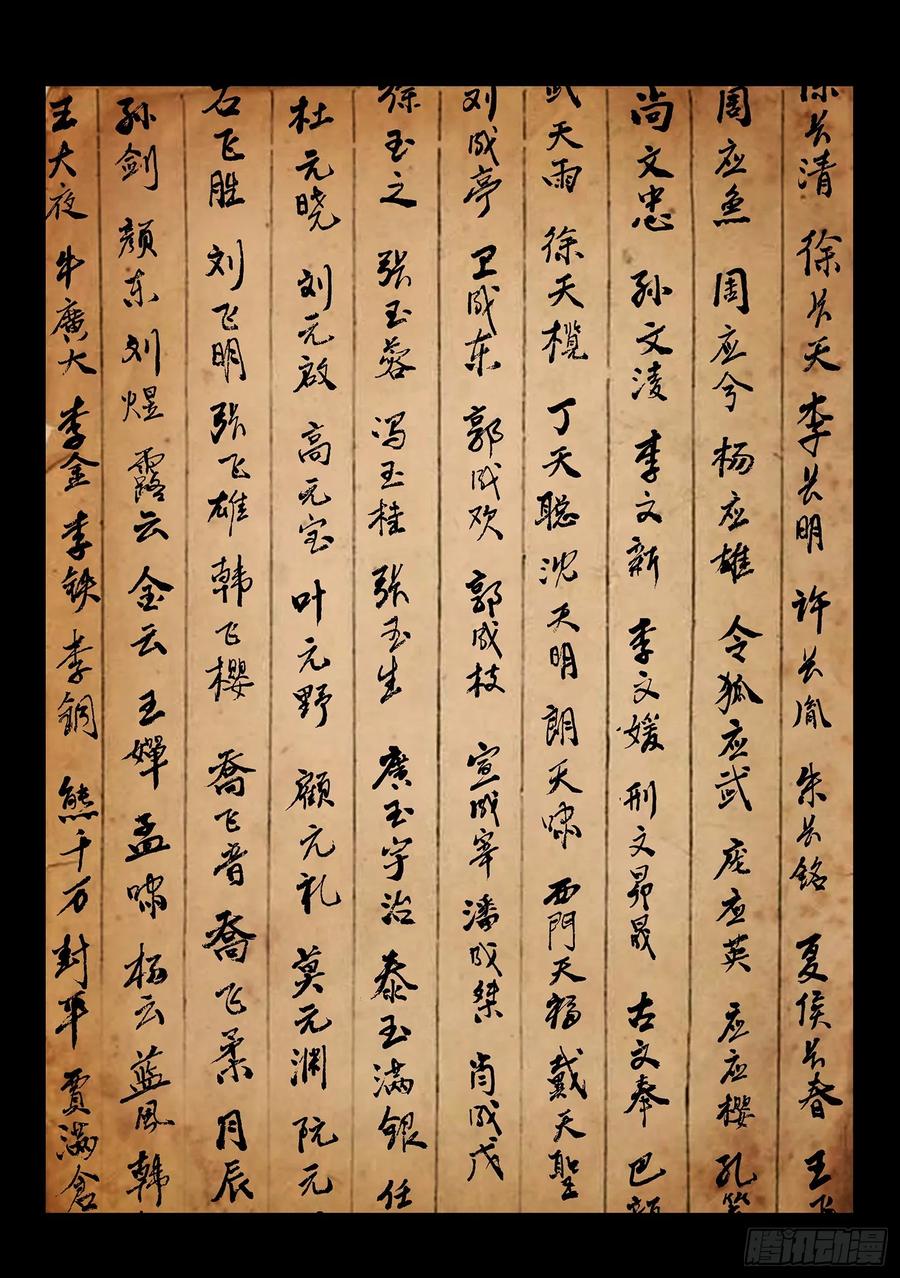 长清 徐长天 李长明 许长胤 朱长铭 夏侯长春 王
周应鱼 周应兮 杨应雄 令狐应武 庞应英 应应樱 孔
尚文忠 孙文凌 李文新 李文媛 刑文昴晟 古文奉 巴
武天雨 徐天榄 丁天聪 沈天明 朗天啸 西門天福 戴天聖
刘成亭 卫成东 郭成欢 郭成枝 宣成宰 潘成桀 肖成戊
徐玉之 张玉蓉 冯玉桂 张玉生 廣玉宇治 泰玉满银 任
杜元晓 刘元啟 高元宝 叶元野 顾元礼 莫元渊 阮元
石飞胜 刘飞明 张飞雄 韩飞樱 喬飞晋 喬飞柔 月辰
孙剑 颜东 刘煜 露云 金云 王婵 孟啸 杨云 蓝风 韩
王大夜 牛廣大 李金 李铁 李铜 熊千万 封平 賈满倉
腾讯动漫